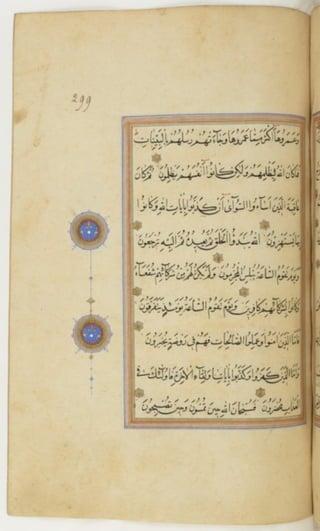 299
وعمروها أكثر مما عمروها وجاءتهم رسلهم بالبينات
فما كان الله ليظلمهم ولكن كانوا أنفسهم يظلمون ثم كان
عاقبة الذين أساءوا السوأى أن كذبوا بآيات الله وكانوا
بها يستهزئون الله يبدؤا الخلق ثم يعيده ثم إليه ترجعون
ويوم تقوم الساعة يبلس المجرمون ولم يكن لهم من شركائهم شفعاء
وكانوا بشركائهم كافرين ويوم تقوم الساعة يومئذ يتفرقون
فأما الذين آمنوا وعملوا الصالحات فهم في روضة يحبرون
وأما الذين كفروا وكذبوا بآياتنا ولقاء الآخرة فأولئك في
العذاب محضرون فسبحان الله حين تمسون وحين تصبحون